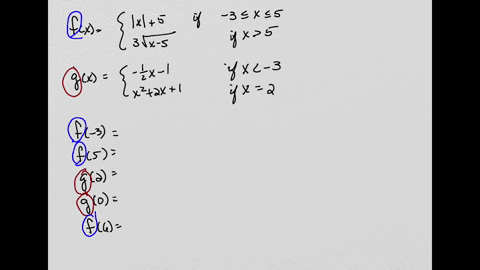 f(x) = { |x| + 5 if -3 ≤ x ≤ 5
3√x-5 if x > 5
g(x) = { -½x - 1 if x < -3
x² + 2x + 1 if x = 2
f(-3) =
f(5) =
g(2) =
g(0) =
f(6) =